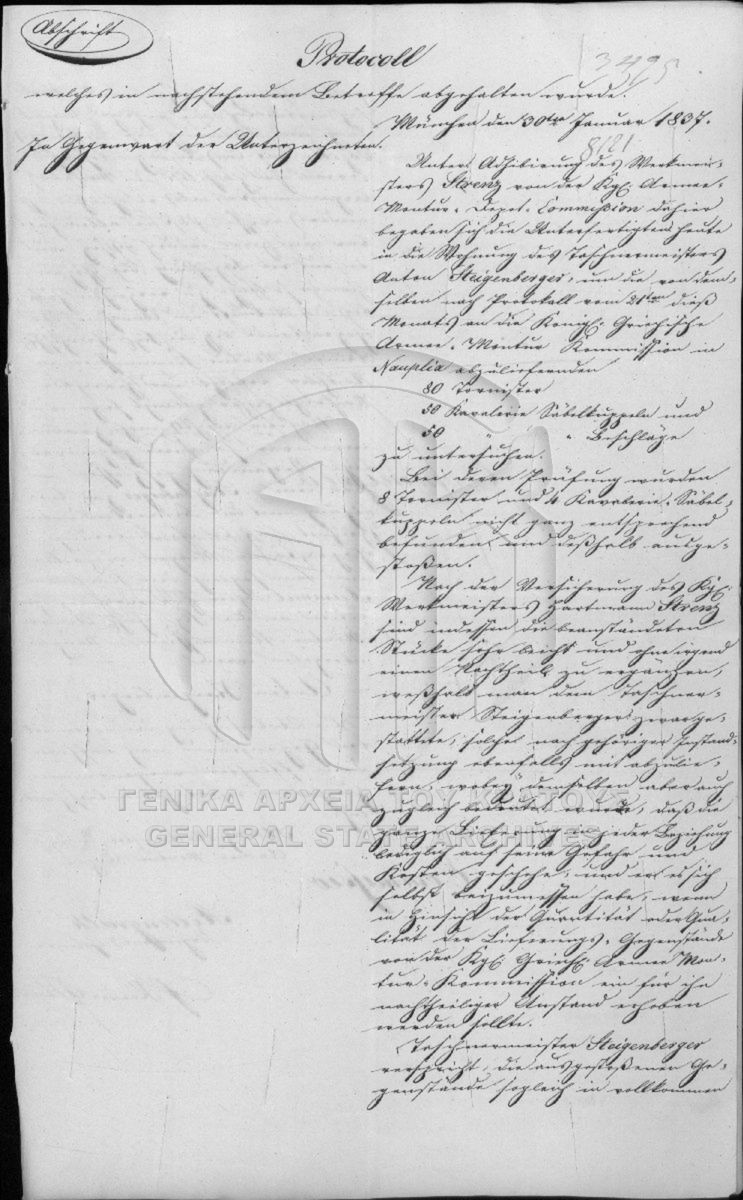 Abschrift
Protocoll
3495
welches in nachstehendem Betreffe abgehalten wurde.
München den 30ten Januar 1837.
In Gegenwart der Unterzeichneten.
Unter Adhibirung des Werkmei-
sters Strenz von der Kgl. Armee-
Montur-Depot-Commission dahier
begaben sich die Unterfertigten heute
in die Wohnung des Taschnermeisters
Anton Steigenberger, um die von dem-
selben nach Protokoll vom 21ten dieß
Monats an die Königl. Griechische
Armee-Montur Kommission in
Nauplia abzuliefernden
80 Tornister
50 Kavalerie Säbelkuppeln und
50 " " Beschläge
zu untersuchen.
Bei deren Prüfung wurden
8 Tornister und 4 Kavalerie-Säbel-
kuppeln nicht ganz entsprechend
befunden und deßhalb ausge-
stoßen.
Nach der Versicherung des Kgl.
Werkmeisters Hartmann Strenz
sind indessen die beanständeten
Stücke sehr leicht und ohne irgend
einen Nachtheil zu ergänzen,
weßhalb man dem Taschner-
meister Steigenberger zwar ge-
stattete, solche nach gehöriger Instand-
setzung ebenfalls mit abzulie-
fern, wobey demselben aber auch
zugleich bedeutet wurde, daß die
ganze Lieferung in jeder Beziehung
lediglich auf seine Gefahr und
Kosten geschehe, und er es sich
selbst beizumessen habe, wenn
in Hinsicht der Quantität oder Qua-
lität der Lieferungs-Gegenstände
von der Kgl. Griech. Armee Mon-
tur-Kommission ein für ihn
nachtheiliger Anstand erhoben
werden sollte.
Taschnermeister Steigenberger
verspricht, die ausgestoßenen Ge-
genstände sogleich in vollkommen
ΓΕΝΙΚΑ ΑΡΧΕΙΑ ΤΟΥ ΚΡΑΤΟΥΣ
GENERAL STATE ARCHIVES